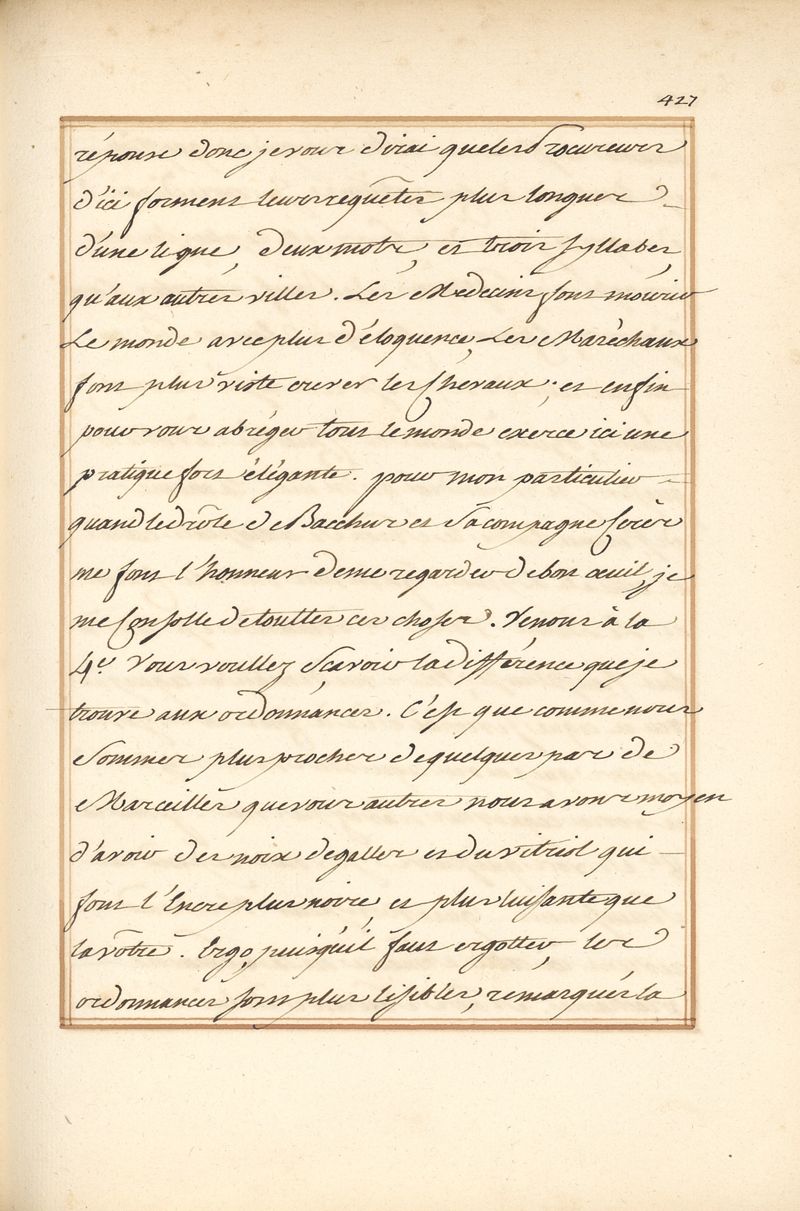 427
réponse donc je vous dirai que les Procureurs
d'ici forment leurs requêtes plus longues
d'une ligne, deux mots, et trois syllabes,
qu'aux autres villes. Les Medecins font mourir
Le monde avec plus d'éloquence, Les Maréchaux
font plus viste crever les Chevaux; et enfin
pour vous abréger tous le monde exerce ici une
pratique fort élégante. pour mon particulier
quand le drôle de Bacchus et sa compagne Cérès
me font l'honneur de me regarder de bon œuil, je
me Consolle de touttes ces choses. Venons à la
4e. Vous voullez sçavoir la différence que je
trouve aux ordonnances. C'est que comme nous
sommes plus proches de quelques pas de
Marceilles que vous autres nous avons moyen
d'avoir des noix de galles et du vitriol qui
font l'Encre plus noire, et plus luisante que
la vôtre. Ergo, puisqu'il faut ergotter, les
ordonnances sont plus lisibles, rémarqués la